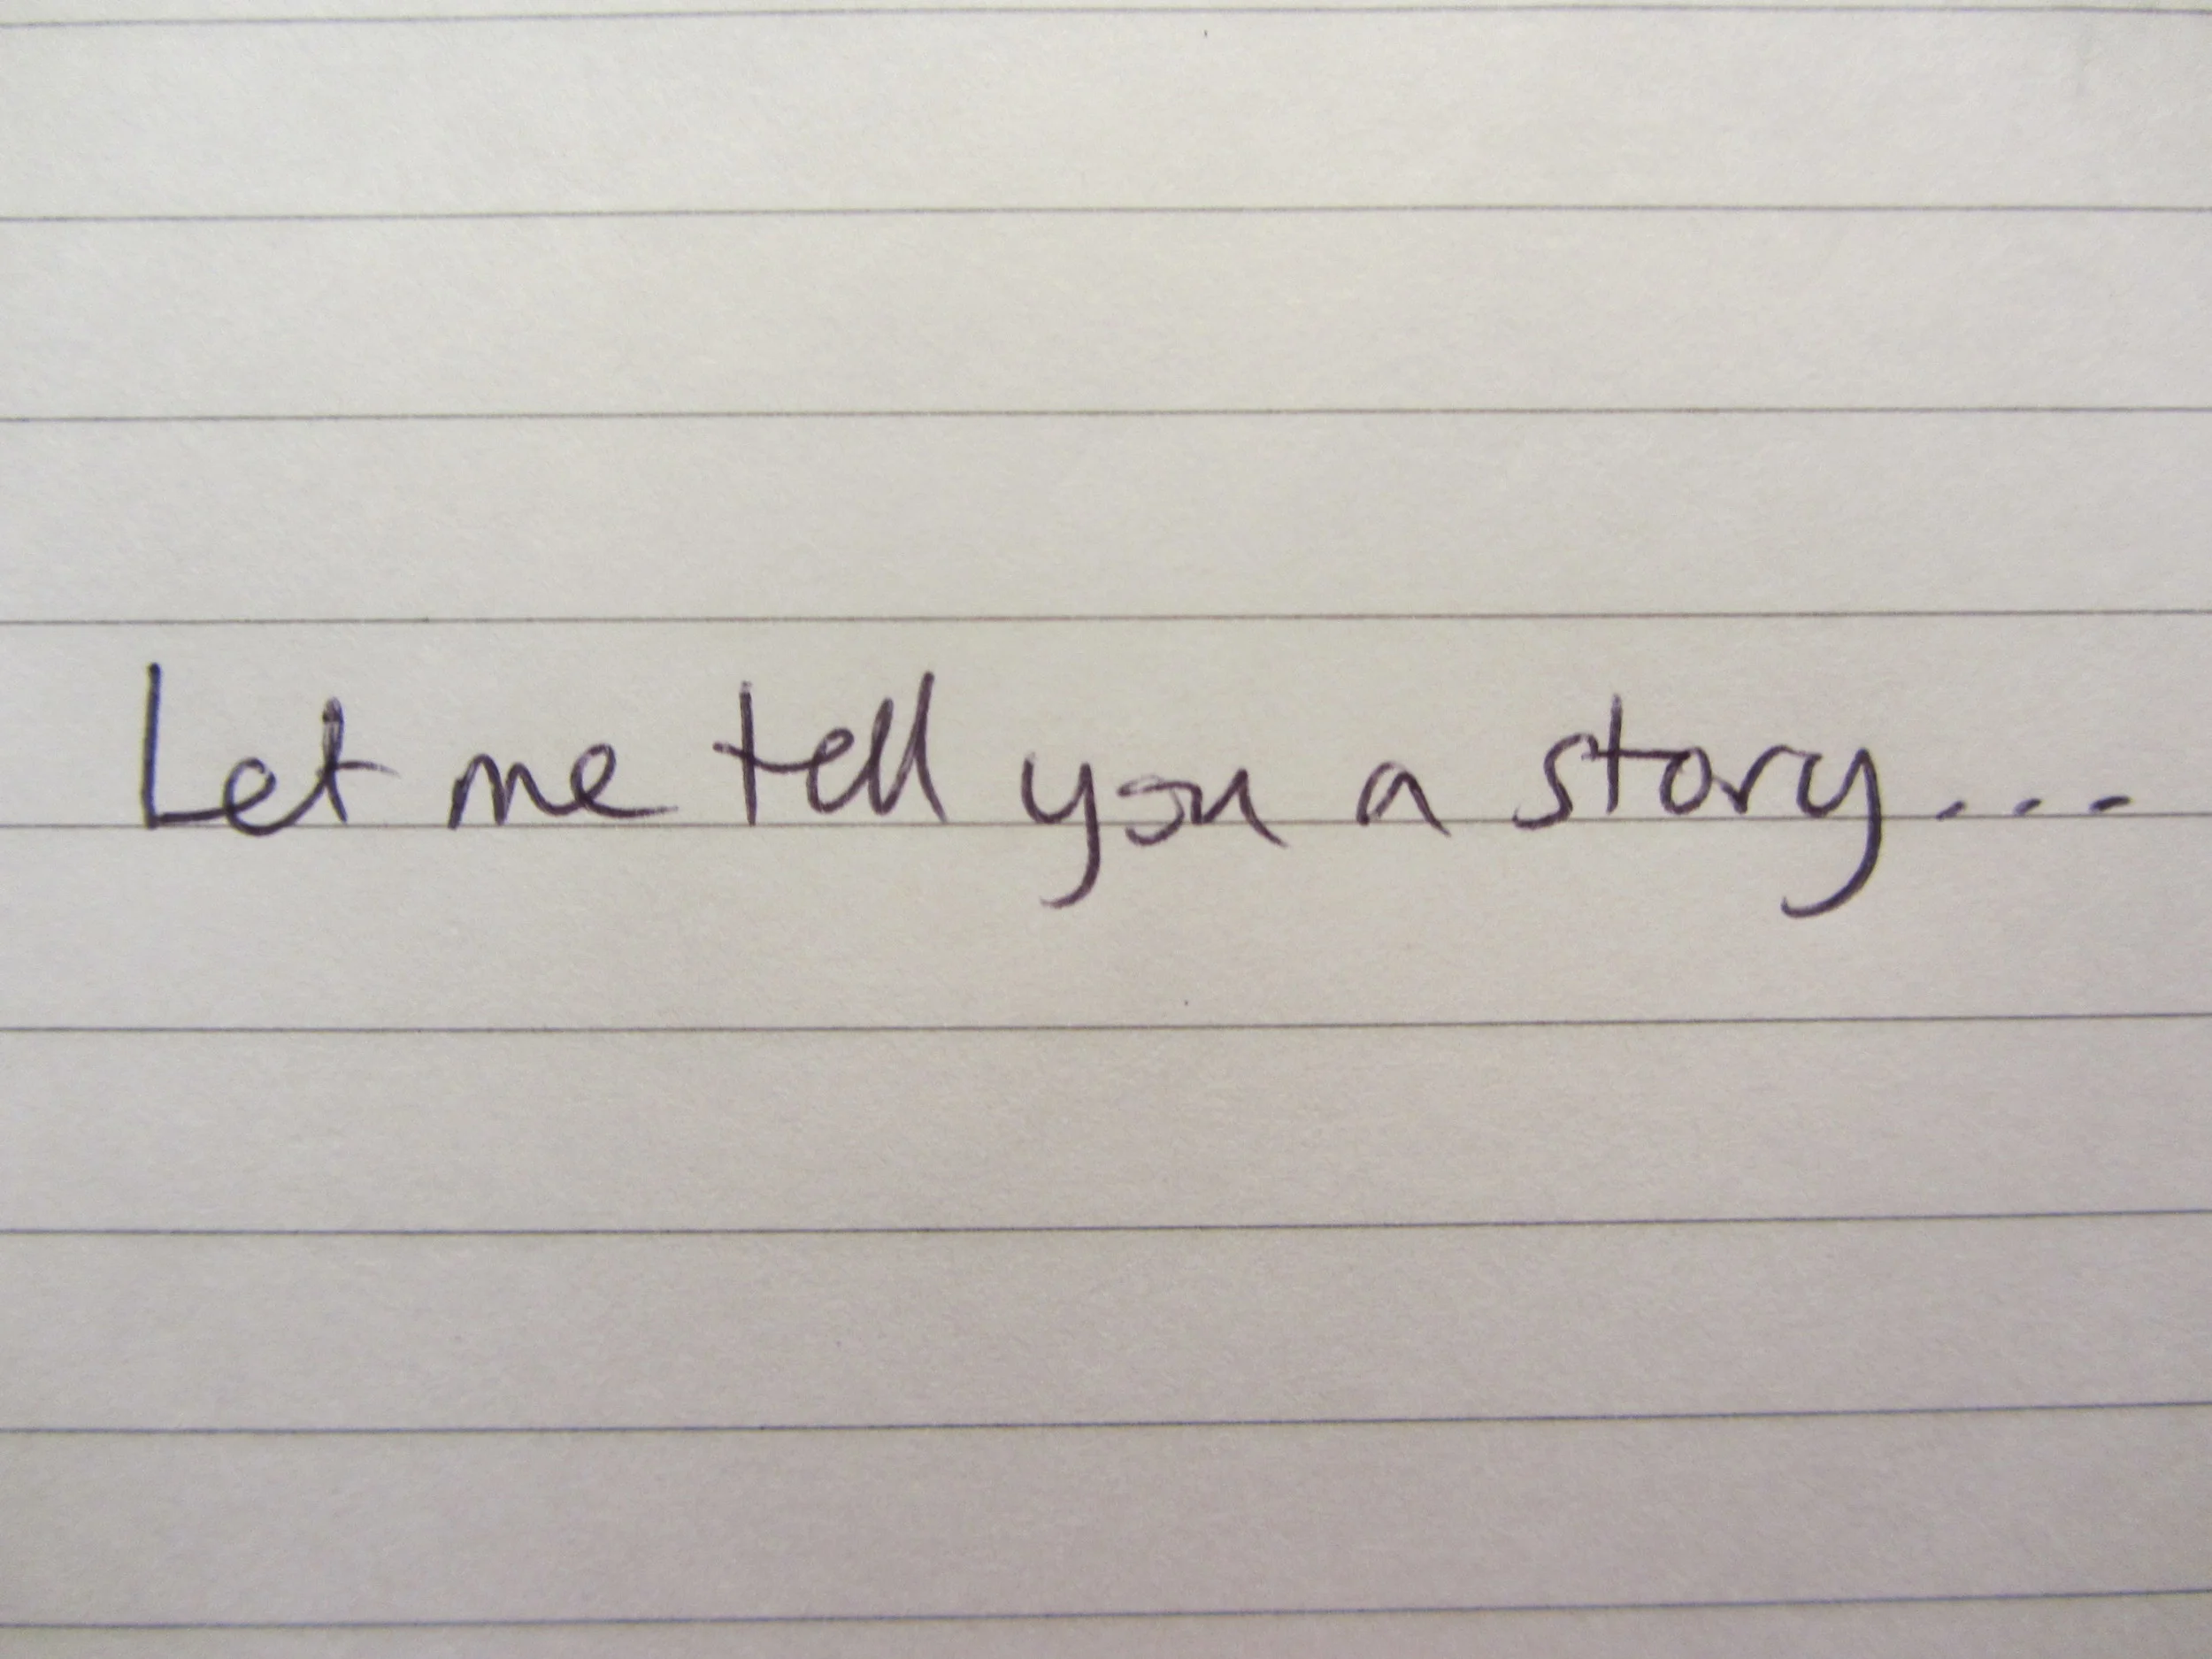 Let me tell you a story...